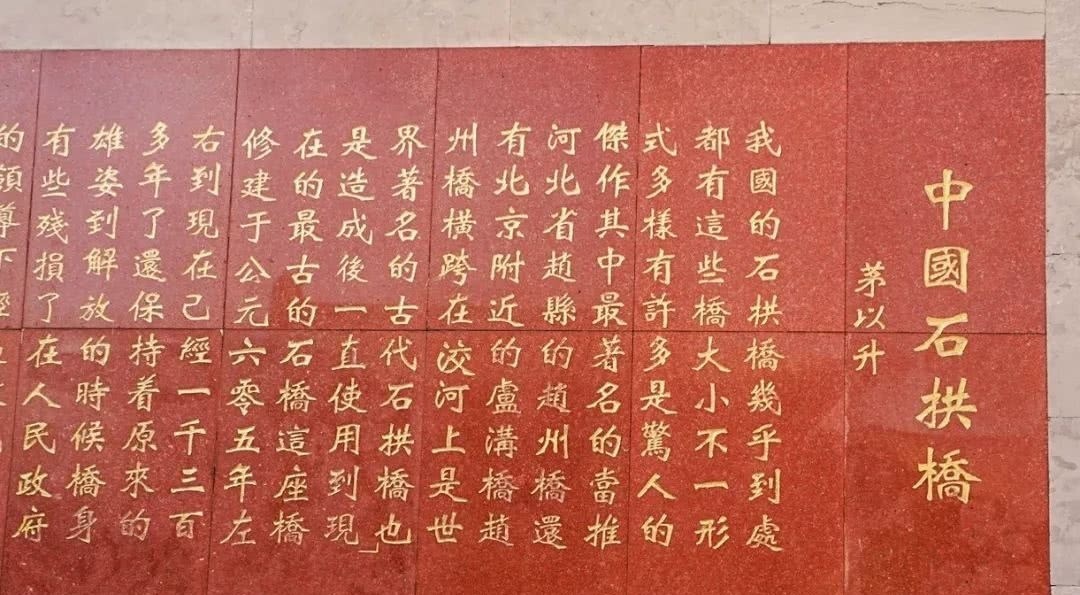 中國石拱橋
茅以升
我國的石拱橋幾乎到處
都有這些橋大小不一形
式多樣有許多是驚人的
傑作其中最著名的當推
河北省趙縣的趙州橋還
有北京附近的盧溝橋趙
州橋橫跨在洨河上是世
界著名的古代石拱橋也
是造成後一直使用到現」
在的最古的石橋這座橋
修建于公元六零五年左
右到現在己經一千三百
多年了還保持着原來的
雄姿到解放的時候橋身
有些殘損了在人民政府
的領導下